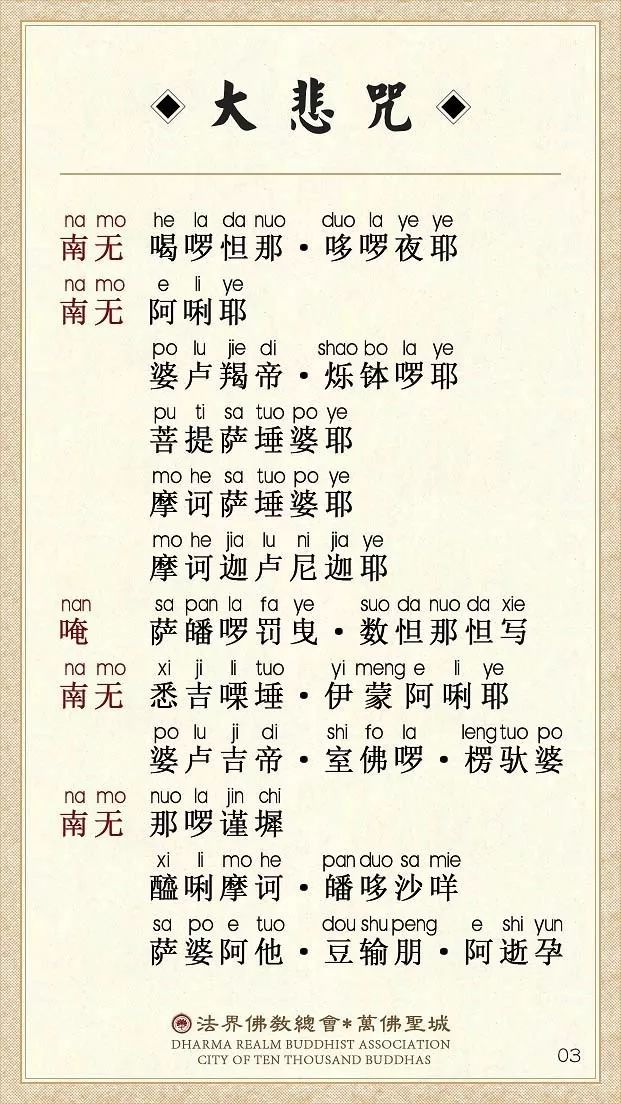 大悲咒
na mo he la da nuo duo la ye ye
南无 喝啰怛那·哆啰夜耶
na mo e li ye
南无 阿唎耶
po lu jie di shao bo la ye
婆卢羯帝·烁钵啰耶
pu ti sa tuo po ye
菩提萨埵婆耶
mo he sa tuo po ye
摩诃萨埵婆耶
mo he jia lu ni jia ye
摩诃迦卢尼迦耶
nan sa pan la fa ye suo da nuo da xie
唵 萨皤啰罚曳·数怛那怛写
na mo xi ji li tuo yi meng e li ye
南无 悉吉㗚埵·伊蒙阿唎耶
po lu ji di shi fo la leng tuo po
婆卢吉帝·室佛啰·楞驮婆
na mo nuo la jin chi
南无 那啰谨墀
xi li mo he pan duo sa mie
醯唎摩诃·皤哆沙咩
sa po e tuo dou shu peng e shi yun
萨婆阿他·豆输朋·阿逝孕
法界佛教總會*萬佛聖城
DHARMA REALM BUDDHIST ASSOCIATION
CITY OF TEN THOUSAND BUDDHAS
03